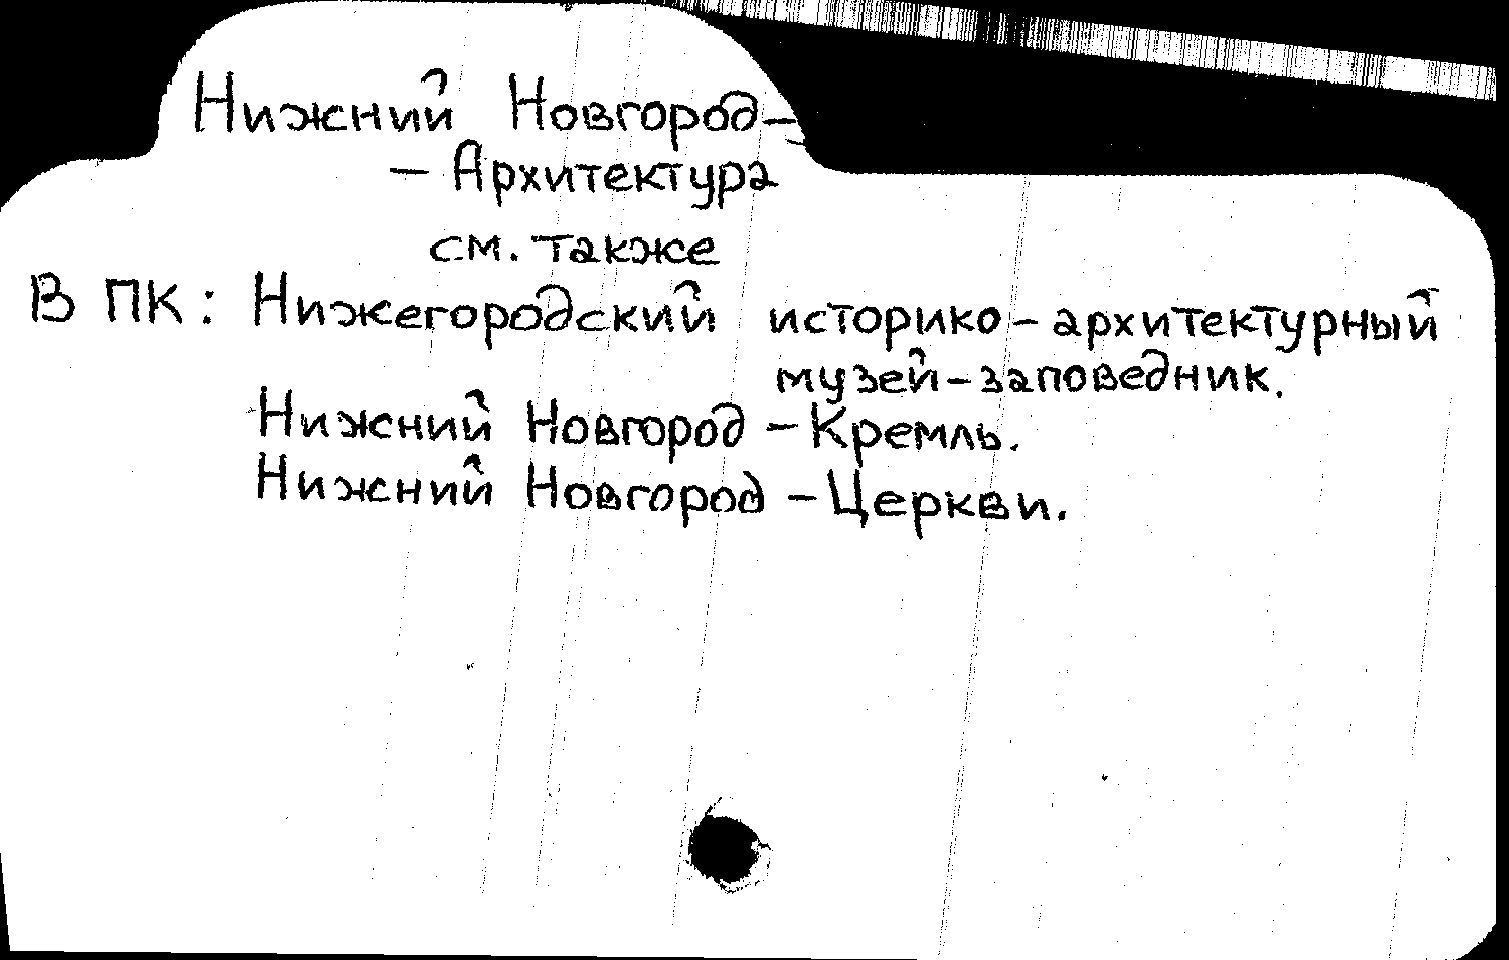 Нижний Новгород-
- Архитектура
см. также
В ПК: Нижегородский историко-архитектурный
музей-заповедник.
Нижний Новгород - Кремль.
Нижний Новгород - Церкви.